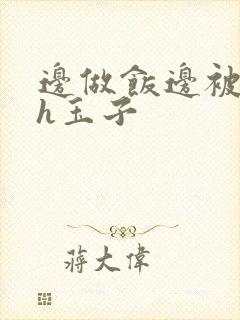 邊做飯邊被
h玉子
蔣大偉